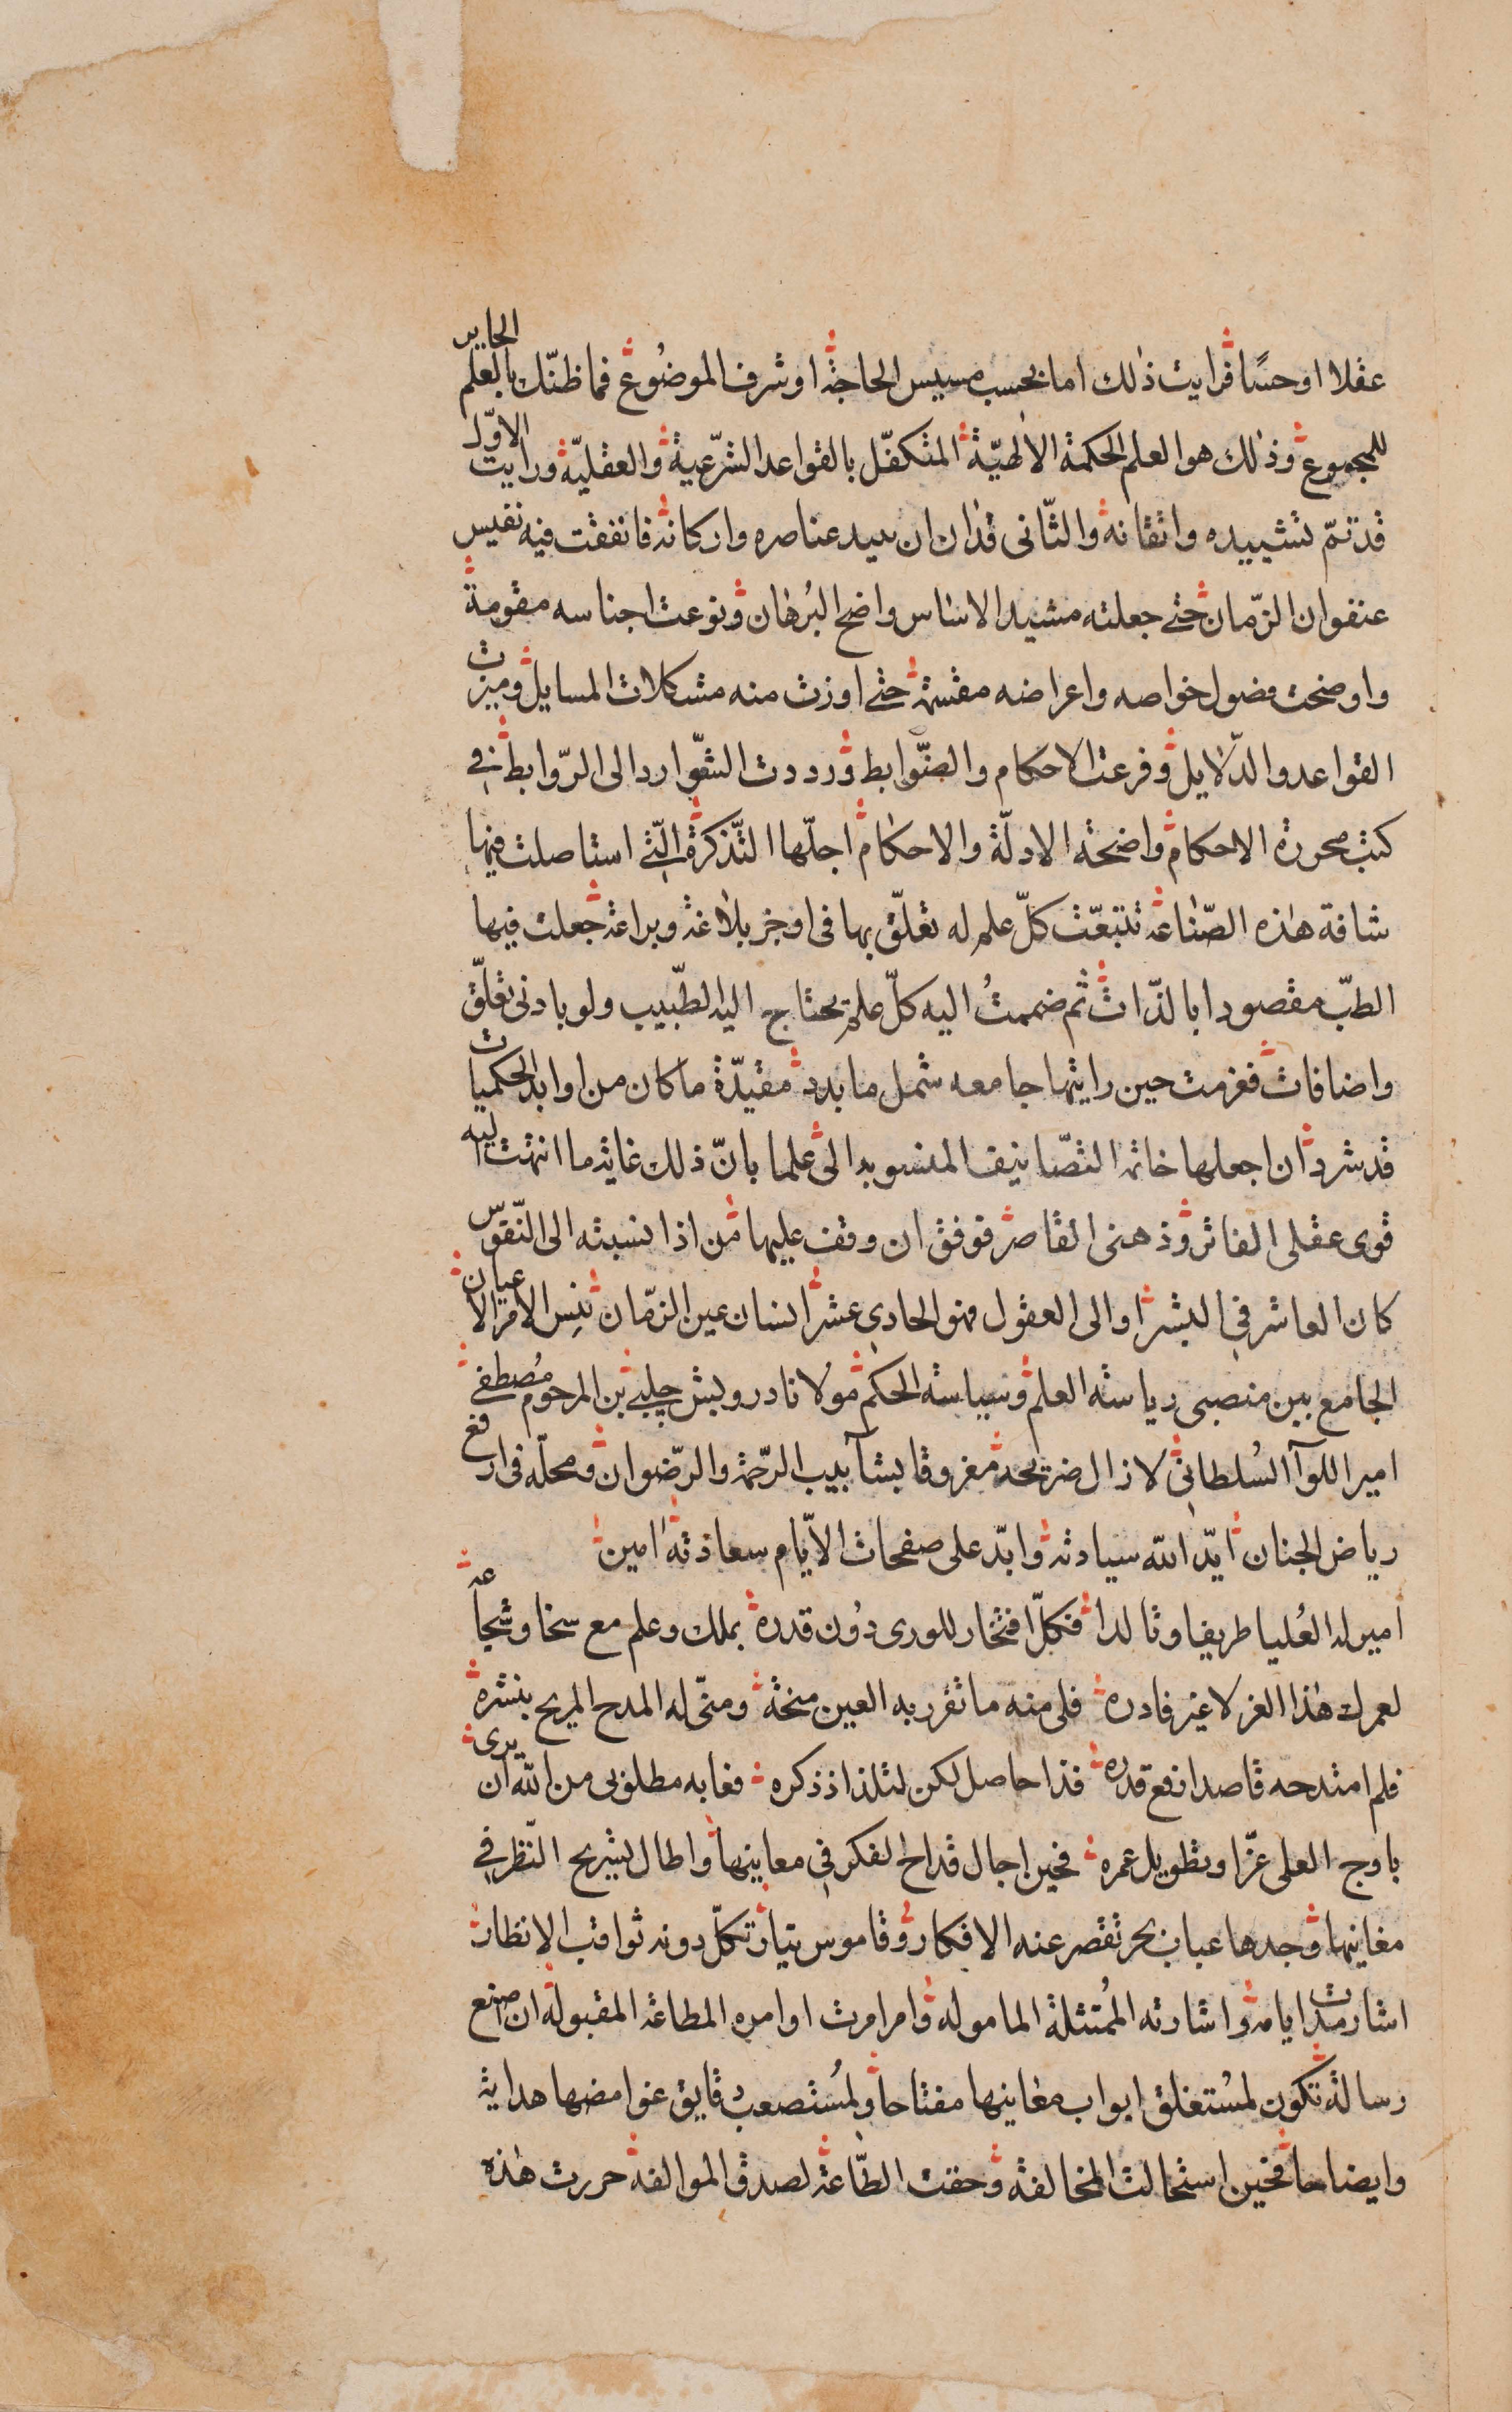 عقلا اوحسًا فرايت ذلك اما بحسب مسيس الحاجة اوشرف الموضُوع فما ظنّك بالعلم الحايز
للمجموع وذلك هو العلم الحكمة الالهيّة المتكفّل بالقواعد الشّرعية والعقليّة ورايت الاوّل
قد تمّ تشييده واتقانه والثّانى قدان ان عناصره واركانه فانفقت فيه نفيس
عنفوان الزّمان حتى جعلته مشيد الاساس واضح البُرهان ونوعت اجناسه مقومة
واوضحت فضول خواصه واعراضه مقسمة حتى اوزت منه مشكلات المسايل وميزت
القواعد والدّلايل وفرعت الاحكام والضّوابط ورددت الشّوارد الى الرّوابط فى
كتب محررة الاحكام واضحة الادلّة والاحكام اجلّها التّذكرة الّتى استاصلت فيها
شافة هذه الصّناعة تتبعّت كلّ علم له تعلّق بها فى اوجز بلاغة وبراعة جعلت فيها
الطبّ مقصودا بالذّات ثم ضممتُ اليه كلّ علم يحتاج اليه الطّبيب ولو بادنى تعلّق
واضافات فعزمت حين رايتها جامعه شمل ما بدد مقيّدة ما كان من اوابد الحكميات
قد شرد ان اجعلها خاتمة التّصانيف المنسوبه الىّ علما بانّ ذلك غاية ما انتهت اليه
قوى عقلى الفاتر وذهنى القاصر فوفق ان وقف عليها من اذا نسبته الى النّفوس
كان العاشر فى البشر او الى العقول فهو الحادى عشر انسان عين الزّمان الامر الاعيان
الجامع بين منصبى رياسة العلم وسياسة الحكم مولانا درويش چلبى بن المرحوم مُصطفى
امير اللوآ السُلطانى لا زال ضريحه مغروقا بشآبيب الرّحمة والرّضوان ومحلّه فى ارفع
رياض الجنان ايّد الله سيادته وابّد على صفحات الايّام سعادته امين
امير له العُليا طريفا وتالدا فكلّ افتخار للورى دُون قدره بملك وعلم مع سخا وشجاعة
لعمرك هذا العز لا عيز فادره فلى منه ما تقرر به العين منحة ومنّى له المدح المريح بنشره
فلم امتدحه قاصدا رفع قدره فذا حاصل لكن لتلذاذ ذكره فغابه مطلوبى من الله ان يرى
باوج العلى عزّا وتطويل عمره فحين اجال قداح الفكر فى معاينها واطال بشريح النّظر فى
مغانيها وجدها عباب بحر تقصر عنه الافكار وقاموس تيار تكلّ دونه ثواقب الانظار
اشارت مدا ايامه واشارته المُمتثلة الماموله وامر امرت اوامره المطاعة المقبوله ان اصنع
رسالة تكون لمُستغلق ابواب معاينها مفتاحا ولمُستصعب دقايق غوامضها هداية
وايضاحا فحين استحالت المخالفة وحقت الطّاعة لصدق الموالفة حررت هذه